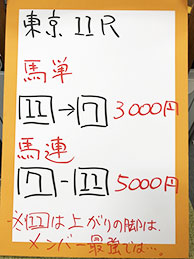 東京11R
馬単
11→7 3000円
馬連
7-11 5000円
※11は上がりの脚は、
メンバー最強では…。